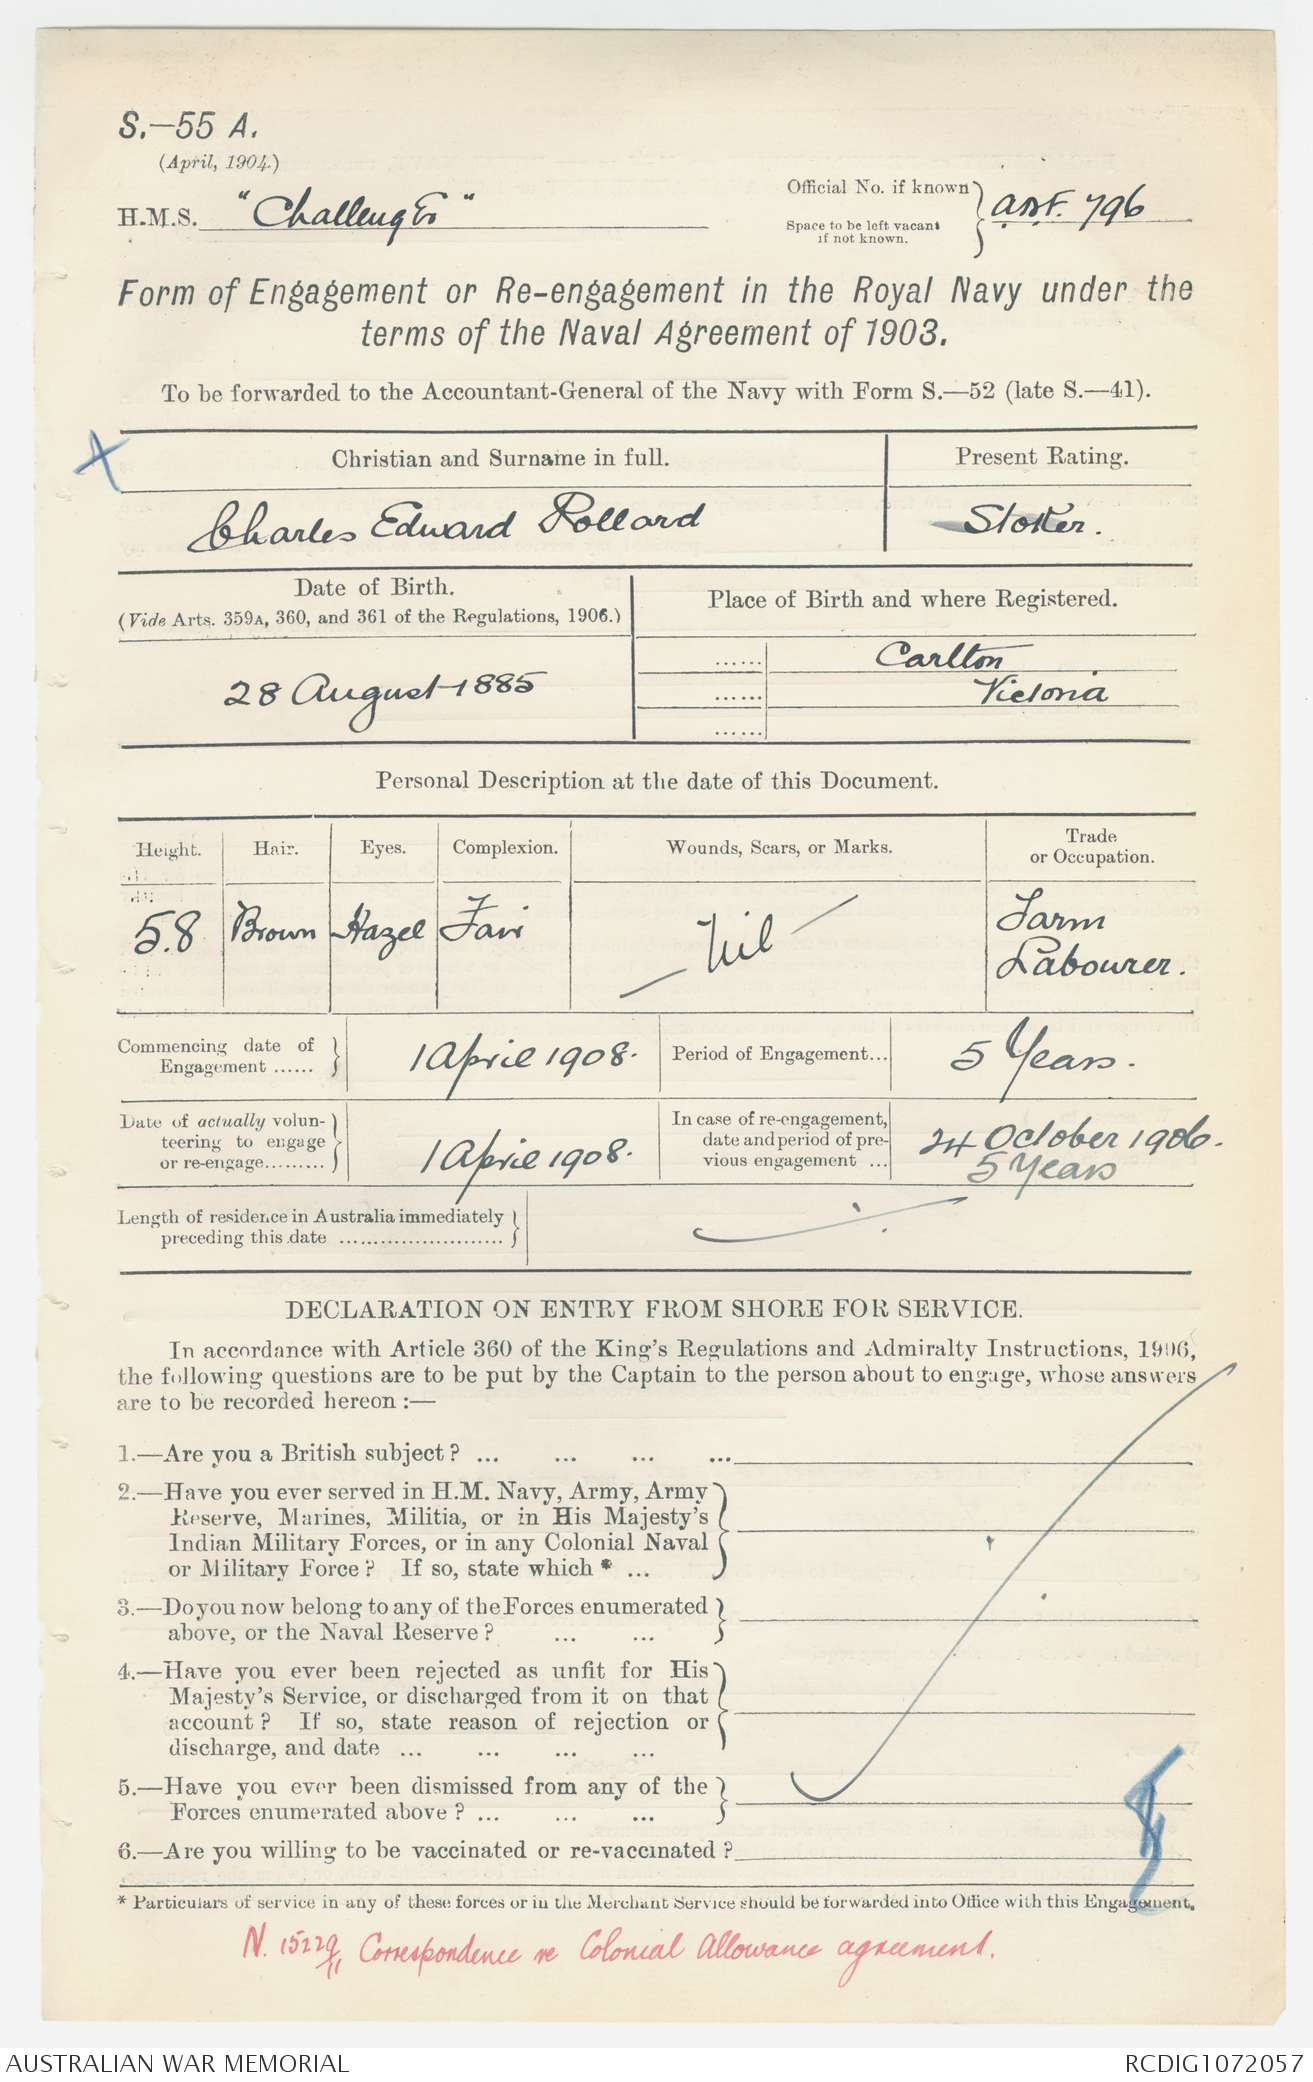 S.—55 A.
(April, 1904.)
H.M.S. "Challenger"
Official No. if known
Space to be left vacant
if not known.
A.N.F. 796
Form of Engagement or Re-engagement in the Royal Navy under the
terms of the Naval Agreement of 1903.
To be forwarded to the Accountant-General of the Navy with Form S.—52 (late S.—41).
Christian and Surname in full.
Present Rating.
Charles Edward Pollard
Stoker.
Date of Birth.
(Vide Arts. 359A, 360, and 361 of the Regulations, 1906.)
Place of Birth and where Registered.
28 August 1885
...... Carlton
...... Victoria
......
Personal Description at the date of this Document.
Height. Hair. Eyes. Complexion. Wounds, Scars, or Marks. Trade
or Occupation.
5.8 Brown Hazel Fair Nil Farm
Labourer.
Commencing date of
Engagement ......
1 April 1908.
Period of Engagement...
5 Years.
Date of actually volun-
teering to engage
or re-engage.........
1 April 1908.
In case of re-engagement,
date and period of pre-
vious engagement ...
24 October 1906.
5 Years
Length of residence in Australia immediately
preceding this date ..........................
DECLARATION ON ENTRY FROM SHORE FOR SERVICE.
In accordance with Article 360 of the King's Regulations and Admiralty Instructions, 1906,
the following questions are to be put by the Captain to the person about to engage, whose answers
are to be recorded hereon :—
1.—Are you a British subject ? ... ... ... ...
2.—Have you ever served in H.M. Navy, Army, Army
Reserve, Marines, Militia, or in His Majesty's
Indian Military Forces, or in any Colonial Naval
or Military Force ? If so, state which * ...
3.—Do you now belong to any of the Forces enumerated
above, or the Naval Reserve ? ... ...
4.—Have you ever been rejected as unfit for His
Majesty's Service, or discharged from it on that
account ? If so, state reason of rejection or
discharge, and date ... ... ... ...
5.—Have you ever been dismissed from any of the
Forces enumerated above ? ... ... ...
6.—Are you willing to be vaccinated or re-vaccinated ?
* Particulars of service in any of these forces or in the Merchant Service should be forwarded into Office with this Engagement.
N. 15229/11 Correspondence re Colonial Allowance agreement.
AUSTRALIAN WAR MEMORIAL
RCDIG1072057